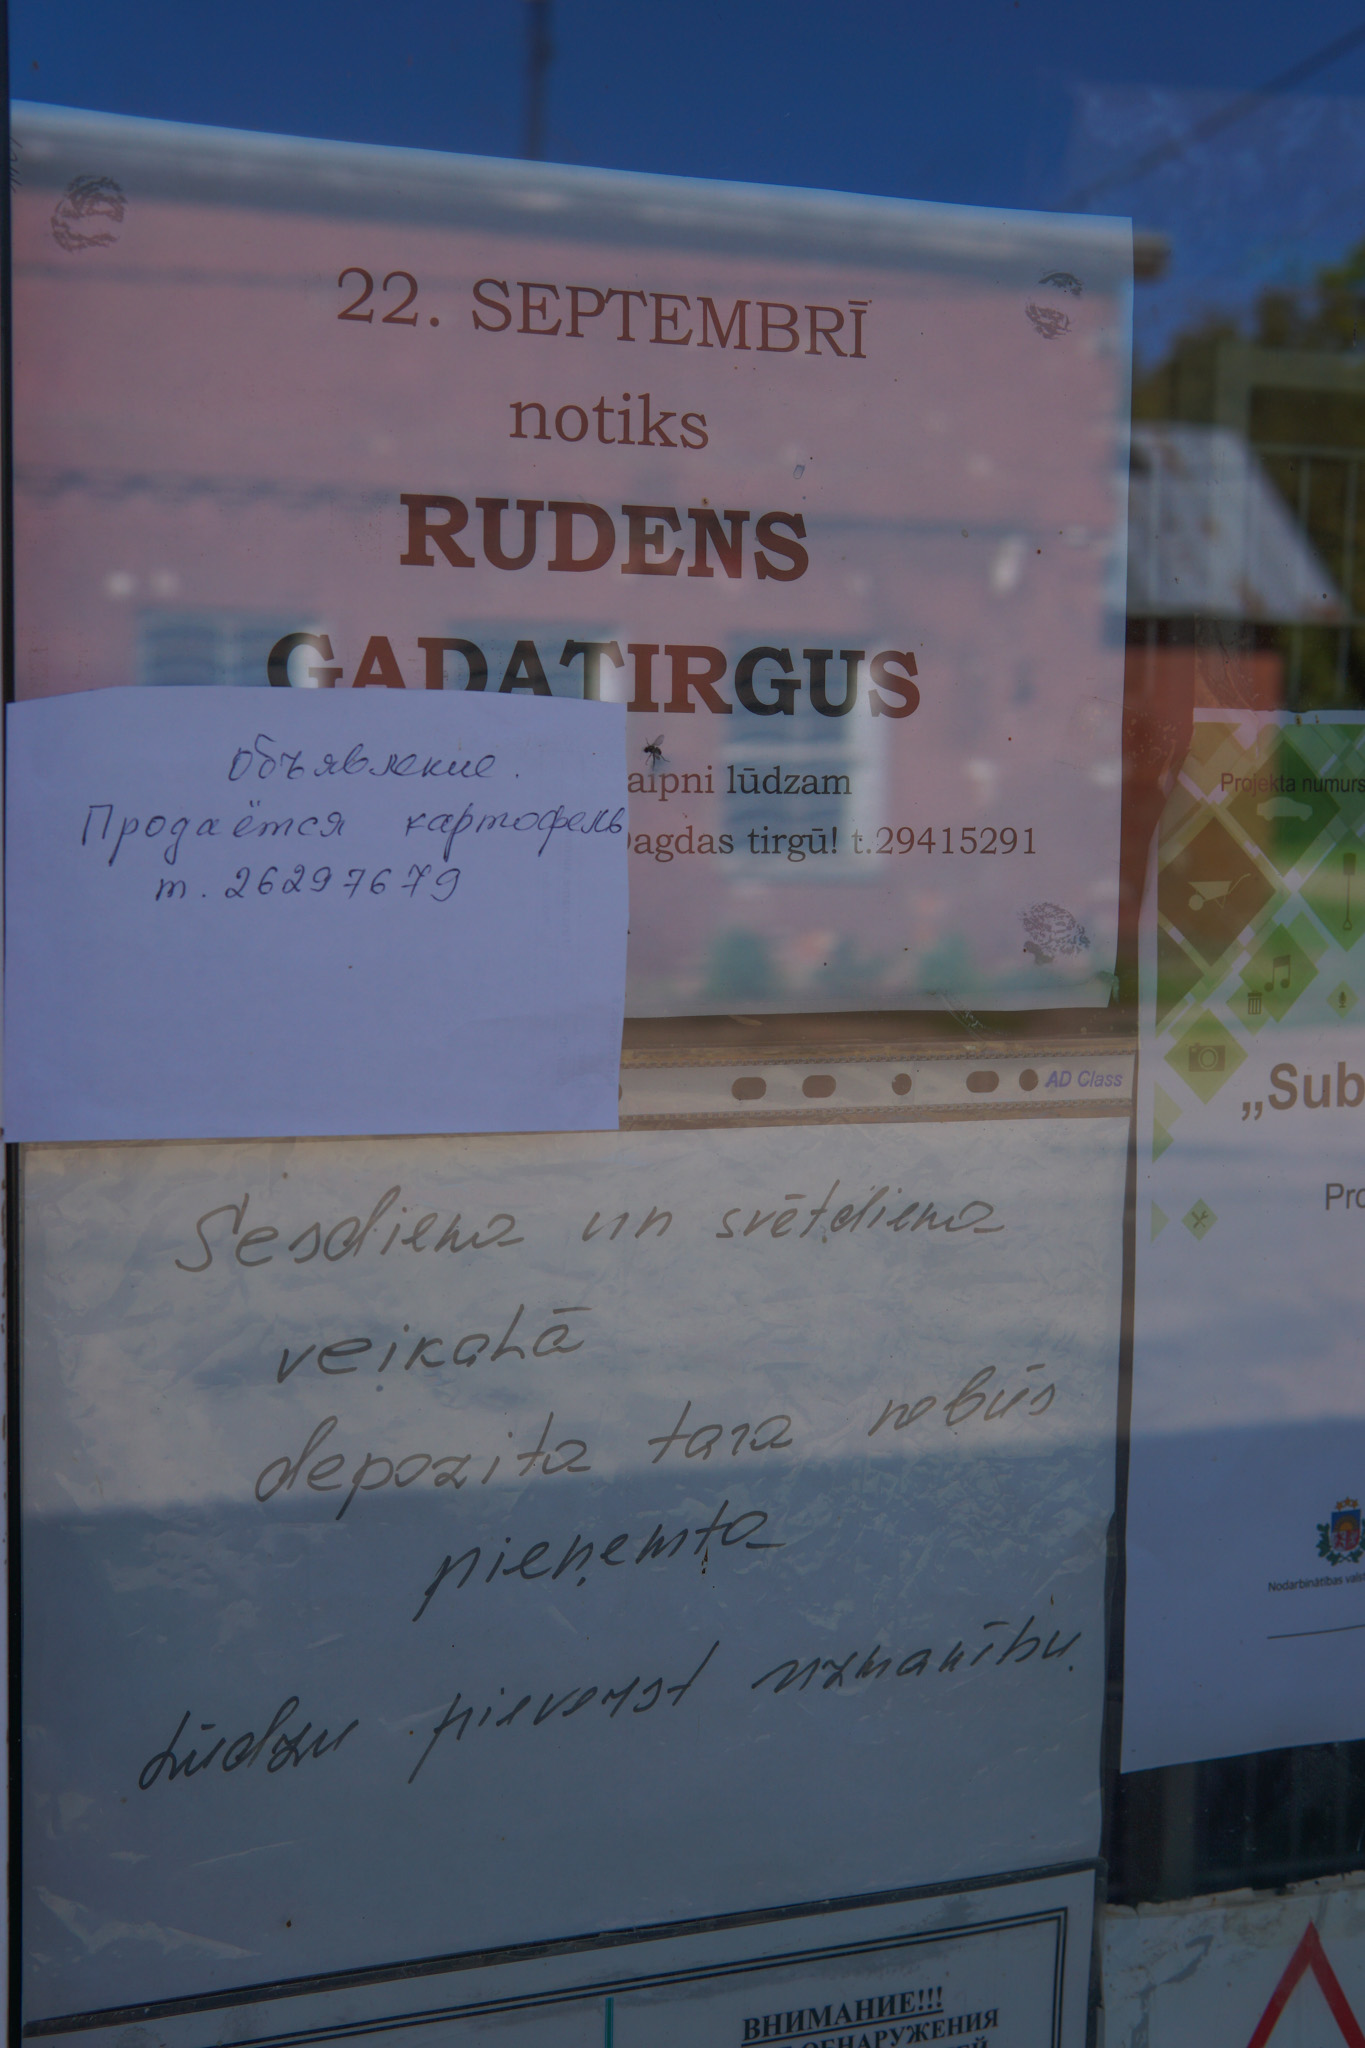 22. SEPTEMBRĪ
notiks
RUDENS
GADATIRGUS
aipni lūdzam
agdas tirgū! t.29415291
Объявление.
Продаётся картофель
т. 26297679
AD Class
Sesdiena un svētdiena
veikalā
depozita tara nebūs
pieņemta
Lūdzu pieverst uzmanību.
Projekta numurs
„Sub
Pro
Nodarbinātības vals
ВНИМАНИЕ!!!
ОБНАРУЖЕНИЯ